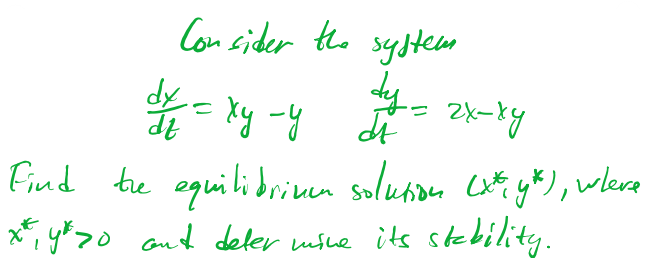 Consider the system
dx/dt = xy - y dy/dt = 2x - xy
Find the equilibrium solution (x*, y*), where
x*, y* > 0 and determine its stability.